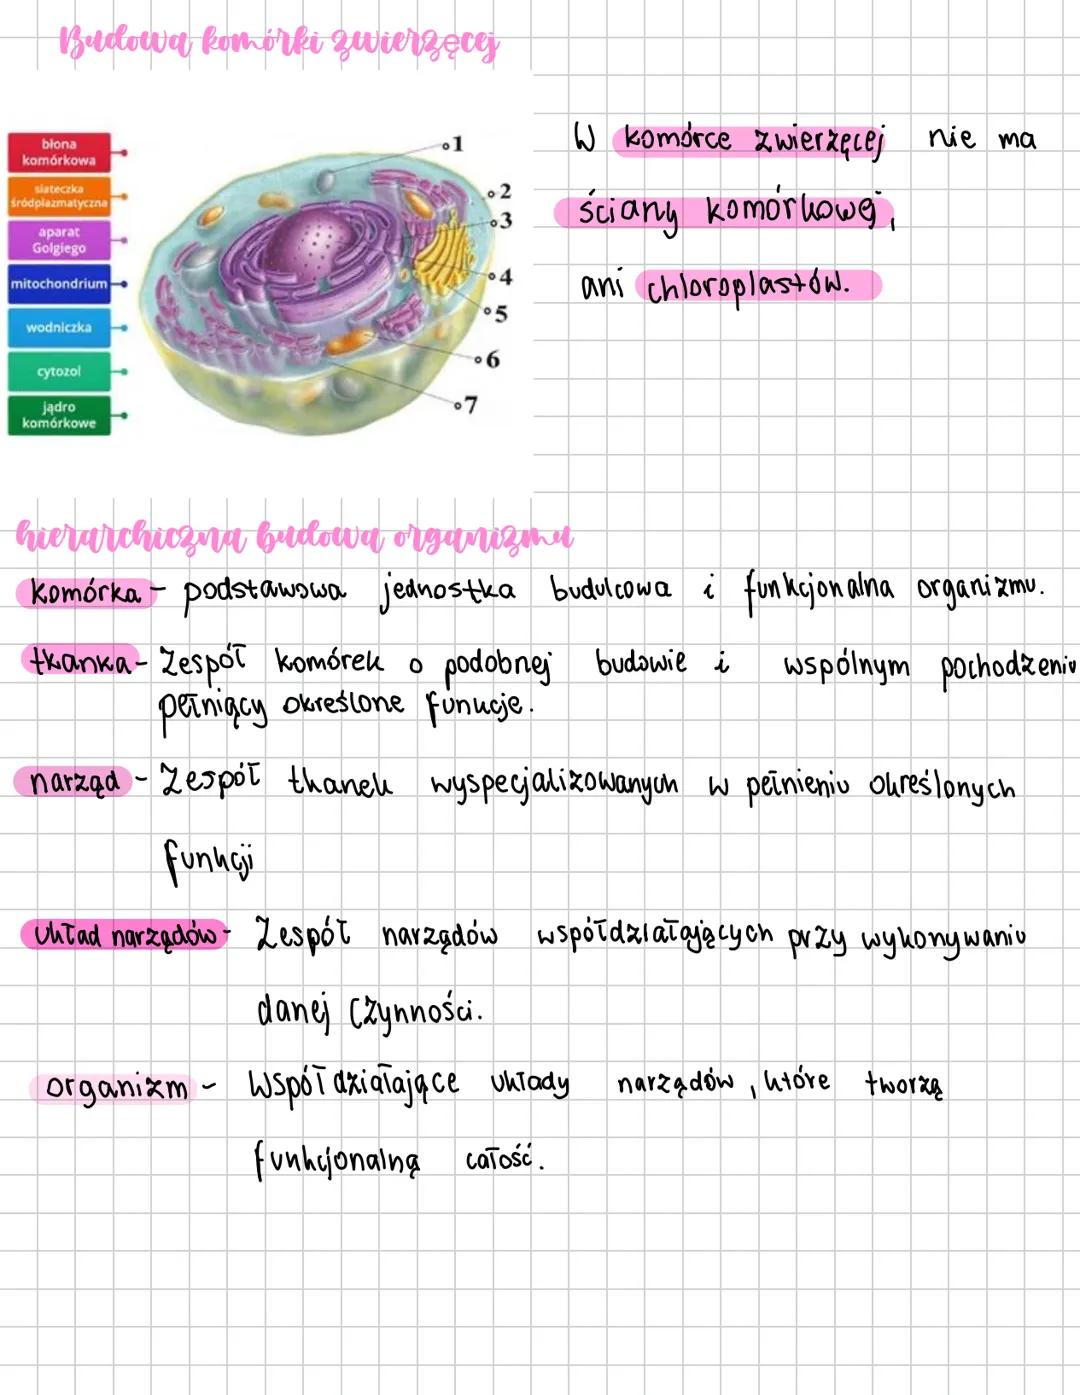 Budowa komórki zwierzęcej
błona
komórkowa
siateczka
śródplazmatyczna
aparat
Golgiego
mitochondrium
wodniczka
cytozol
jądro
komórkowe
1
2
3
4
5
6
7
W komórce zwierzęcej nie ma
ściany komórkowej,
ani chloroplastów.
hierarchiczna budowa organizmu
komórka - podstawowa jednostka budulcowa i funkcjonalna organizmu.
tkanka - Zespół komórek o podobnej budowie i wspólnym pochodzeniu
pełniący określone funkcje.
narząd - Zespół tkanek wyspecjalizowanych w pełnieniu określonych
funkcji
układ narządów - Zespół narządów współdziałających przy wykonywaniu
danej czynności.
organizm - Współdziałające układy narządów, które tworzą
funkcjonalną całość.